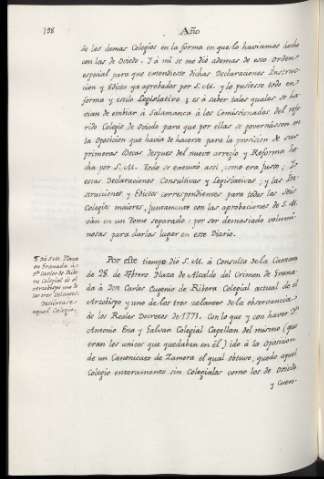 198
Año
de los demas Colegios en la forma en que lo haviamos hecho
con los de Oviedo. Y á mi se me dió ademas de esto orden
especial para que entendiese dichas Declaraciones Instruc-
cion y Edicto ya aprobados por S. M. y le pusiese todo en
forma y estilo Legislativo, es á saber tales quales se ha-
vian de embiar á Salamanca á los Comisionados del refe-
rido Colegio de Oviedo para que por ellas se governasen en
la Oposicion que havia de hacerse para la provision de sus
primeras Becas despues del nuevo arreglo y Reforma he-
cha por S. M. Todo se executó assi, como era justo; Y
estas Declaraciones Consultivas y Legislativas, y las Ins-
trucciones y Edictos correspondientes para todos los Seis
Colegios maiores, juntamente con las aprobaciones de S. M.
ván en un tomo separado: por ser demasiado volumi-
nosas para darlas lugar en este Diario.
¶ Dió S. M. Plaza
en Granada á
Dn. Carlos de Ribe-
ra Colegial de el
Arzobispo uno de
los tres zelantes.
Desierto
aquel Colegio.
Por este tiempo Dió S. M. á Consulta de la Camara
de 28. de Febrero Plaza de Alcalde del Crimen de Grana-
da á Don Carlos Eugenio de Ribera Colegial actual de el
Arzobispo y uno de los tres zelantes de la observancia
de los Reales Decretos de 1771. Con lo que y con haver Dn.
Antonio Eva y Galvan Colegial Capellan del mismo (que
eran los unicos que quedaban en él) ido á la Oposicion
de un Canonicato de Zamora el qual obtuvo, quedó aquel
Colegio enteramente sin Colegiales como los de Oviedo
y Cuen-